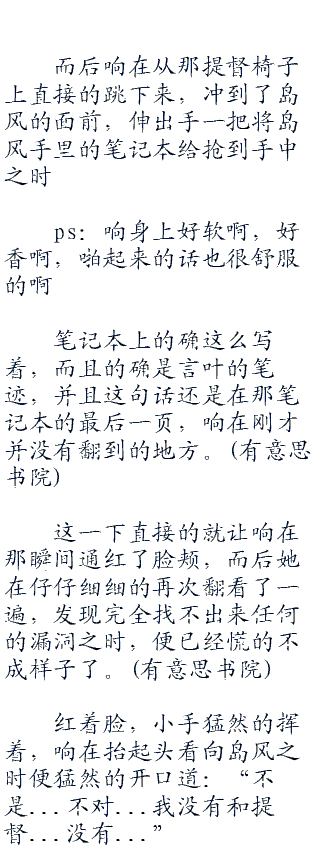 而后响在从那提督椅子
上直接的跳下来，冲到了岛
风的面前，伸出手一把将岛
风手里的笔记本给抢到手中
之时
ps：响身上好软啊，好
香啊，啪起来的话也很舒服
的啊
笔记本上的确这么写
着，而且的确是言叶的笔
迹，并且这句话还是在那笔
记本的最后一页，响在刚才
并没有翻到的地方。(有意思
书院)
这一下直接的就让响在
那瞬间通红了脸颊，而后她
在仔仔细细的再次翻看了一
遍，发现完全找不出来任何
的漏洞之时，便已经慌的不
成样子了。(有意思书院)
红着脸，小手猛然的挥
着，响在抬起头看向岛风之
时便猛然的开口道：“不
是...不对...我没有和提
督...没有...”